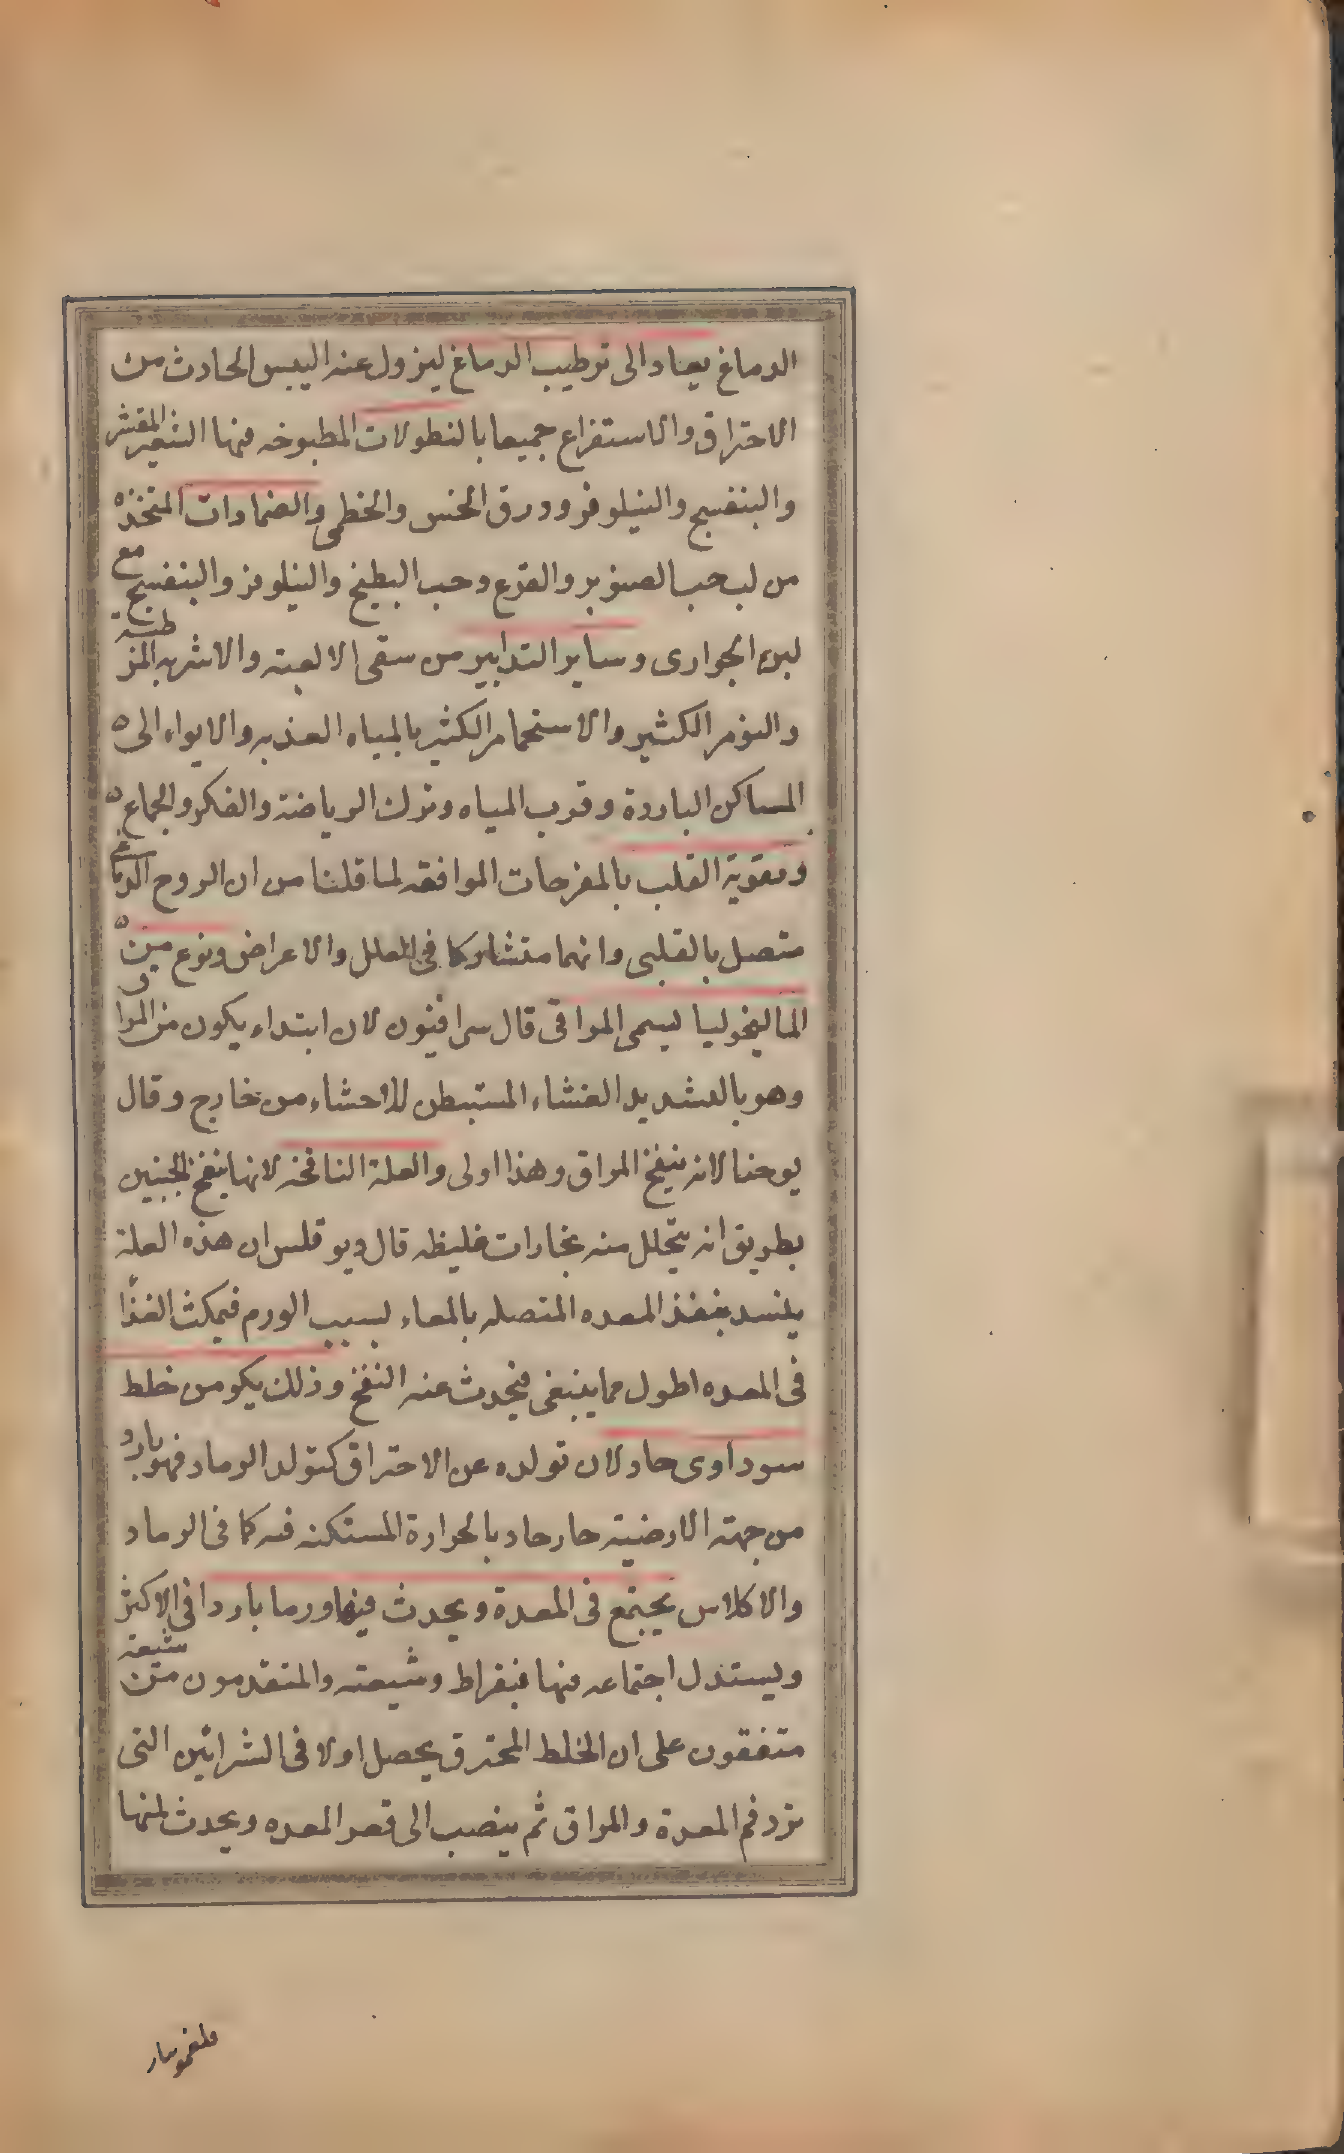 الدماغ يعاد الى ترطيب الدماغ ليزول عنه اليبس الحادث من
الاحتراق والاستفراغ جميعا بالنطولات المطبوخه فيها الشعير المقشر
والبنفسج والنيلوفر وورق الخس والخطمى والضمادات المتخذه
من لب حب الصنوبر والقرع وحب البطيخ والنيلوفر والبنفسج مع
لبن الجوارى وساير التدابير من سقى الالعبه والاشربه المرطبة
والنوم الكثير والاستحمام الكثير بالمياه العذبه والايواء الى
المساكن الباردة وقرب المياه وترك الرياضة والفكر والجماع
وتقوية القلب بالمفرحات الموافقه لما قلنا من ان الروح الدماغى
متصل بالقلبى وانهما متشاركا فى العلل والاعراض ونوع من
الماليخوليا يسمى المراقى قال سرافيون لان ابتداء يكون من المراق
وهو بالتشديد الغشاء المستبطن للاحشاء من خارج وقال
يوحنا لانه ينفخ المراق وهذا اولى والعلة النافخه لانها ينفخ الجنبين
بطريق انه يتحلل منه بخارات غليظه قال ديوقلس ان هذه العلة
ينسد منفذ المعده المتصله بالمعاء بسبب الورم فيمكث الغذا
فى المعده اطول مما ينبغى فيحدث عنه النفخ وذلك يكو من خلط
سوداوى حاد لان تولده عن الاحتراق كتولد الرماد فهو بارد
من جهته الارضيته حار حاد بالحرارة المستكنه فيه كما فى الرماد
والاكلاس يجتمع فى المعدة ويحدث فيها ورما باردا فى الاكثر
ويستدل اجتماعه فيها فبقراط وشيعته والمتقدمون من شيعته
متفقون على ان الخلط المحترق يحصل اولا فى الشرائين التى
ترد فم المعدة والمراق ثم ينصب الى قعر المعده ويحدث لمنها